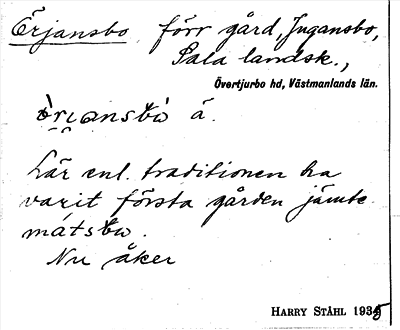 Örjansbo, förr gård, Jugansbo,
Sala landsk.,
Övertjurbo hd, Västmanlands län.
ö̀rɩansbὼ ä.
Lär enl. traditionen ha
varit första gården jämte
mátsbω.
Nu åker
HARRY STÅHL 1935